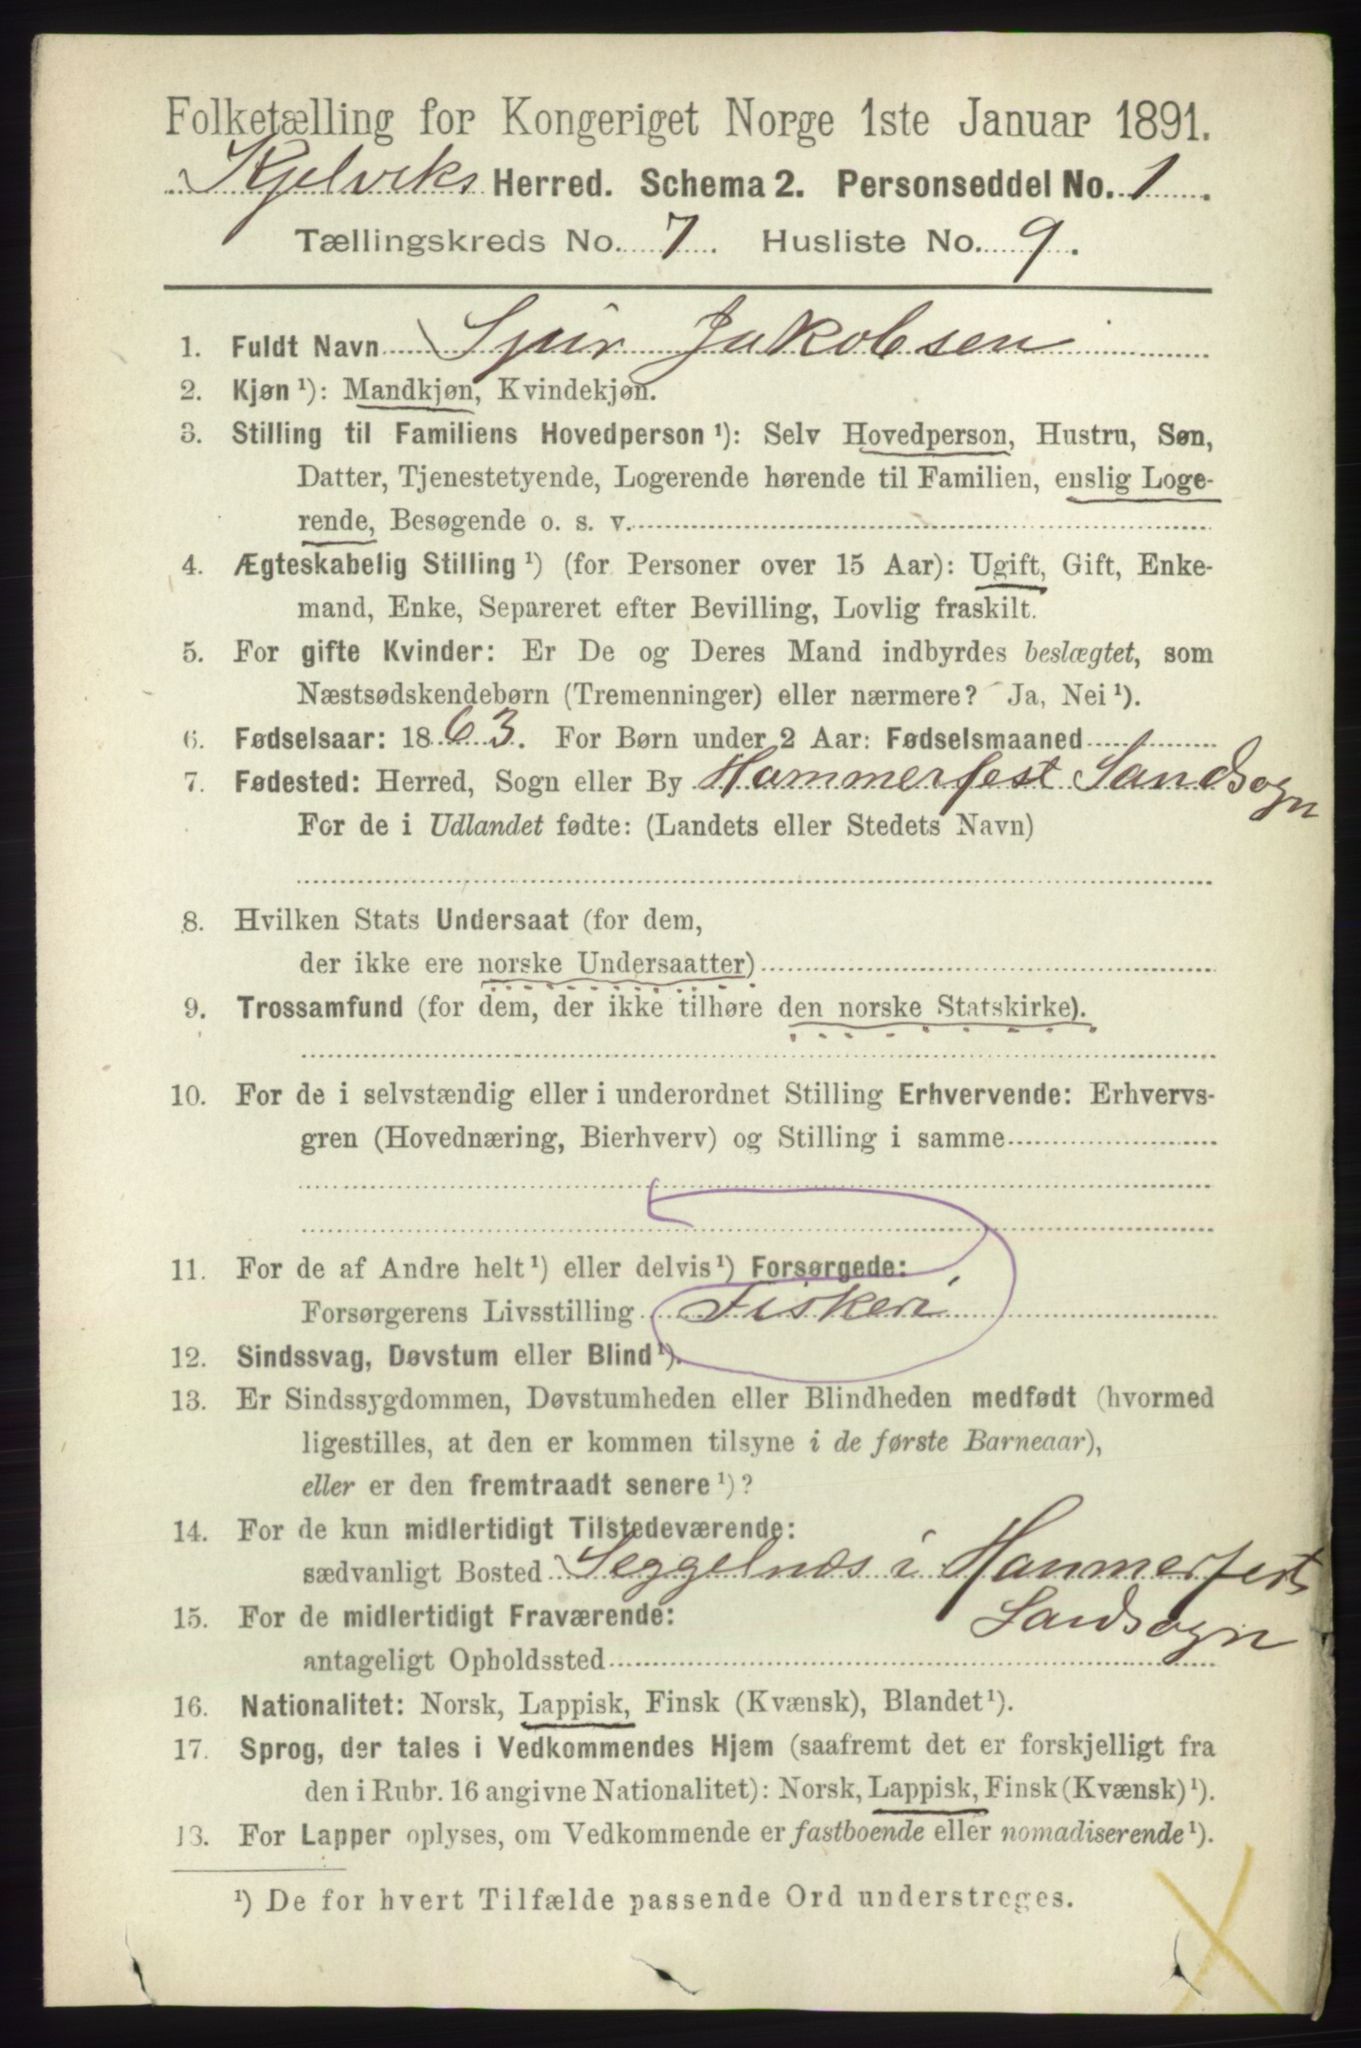 Folketælling for Kongeriget Norge 1ste Januar 1891.
Kjelviks Herred. Schema 2. Personseddel No. 1.
Tællingskreds No. 7. Husliste No. 9.
1. Fuldt Navn Sjur Jakobsen
2. Kjøn ¹): Mandkjøn, Kvindekjøn.
3. Stilling til Familiens Hovedperson ¹): Selv Hovedperson, Hustru, Søn,
Datter, Tjenestetyende, Logerende hørende til Familien, enslig Loge-
rende, Besøgende o. s. v.
4. Ægteskabelig Stilling ¹) (for Personer over 15 Aar): Ugift, Gift, Enke-
mand, Enke, Separeret efter Bevilling, Lovlig fraskilt.
5. For gifte Kvinder: Er De og Deres Mand indbyrdes beslægtet, som
Næstsødskendebørn (Tremenninger) eller nærmere? Ja, Nei ¹).
6. Fødselsaar: 1863. For Børn under 2 Aar: Fødselsmaaned
7. Fødested: Herred, Sogn eller By Hammerfest Landsogn
For de i Udlandet fødte: (Landets eller Stedets Navn)
8. Hvilken Stats Undersaat (for dem,
der ikke ere norske Undersaatter)
9. Trossamfund (for dem, der ikke tilhøre den norske Statskirke).
10. For de i selvstændig eller i underordnet Stilling Erhvervende: Erhvervs-
gren (Hovednæring, Bierhverv) og Stilling i samme
11. For de af Andre helt ¹) eller delvis ¹) Forsørgede:
Forsørgerens Livsstilling Fiskeri
12. Sindssvag, Døvstum eller Blind ¹).
13. Er Sindssygdommen, Døvstumheden eller Blindheden medfødt (hvormed
ligestilles, at den er kommen tilsyne i de første Barneaar),
eller er den fremtraadt senere ¹)?
14. For de kun midlertidigt Tilstedeværende:
sædvanligt Bosted Seggelnæs i Hammerfests
Landsogn
15. For de midlertidigt Fraværende:
antageligt Opholdssted
16. Nationalitet: Norsk, Lappisk, Finsk (Kvænsk), Blandet ¹).
17. Sprog, der tales i Vedkommendes Hjem (saafremt det er forskjelligt fra
den i Rubr. 16 angivne Nationalitet): Norsk, Lappisk, Finsk (Kvænsk) ¹).
18. For Lapper oplyses, om Vedkommende er fastboende eller nomadiserende ¹).
¹) De for hvert Tilfælde passende Ord understreges.